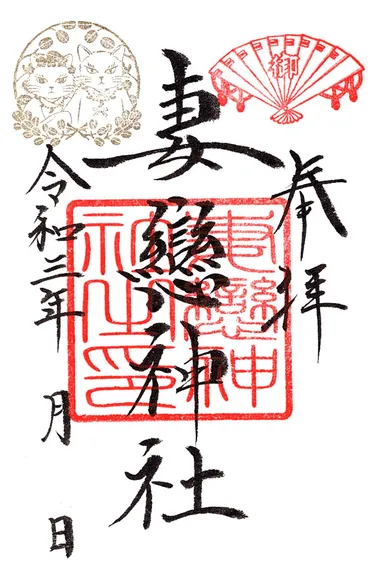 奉拝
妻戀神社
令和三年 月 日
御
妻戀神
社之印